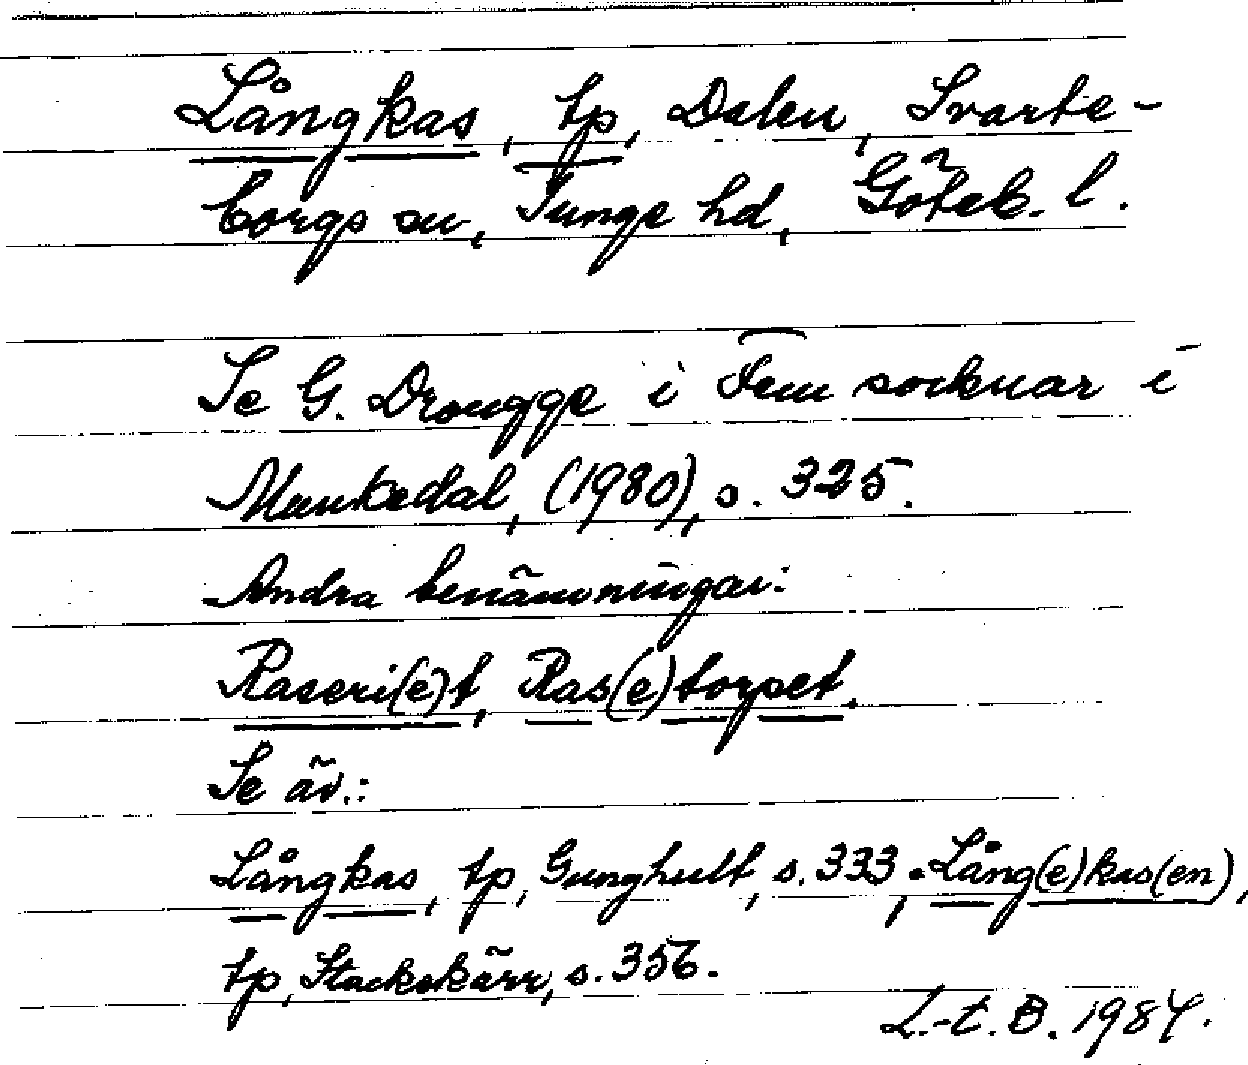 Långkas, tp, Dalen, Svarte-
borgs sn, Tunge hd, Göteb. l.
Se G. Drougge i Fem socknar i
Munkedal, (1980), s. 325.
Andra benämningar:
Raseri(e)t, Ras(e)torpet.
Se äv.:
Långkas, tp, Gunghult, s. 333, Lång(e)kas(en),
tp, Stackekärr, s. 356.
L.-t. B. 1984.